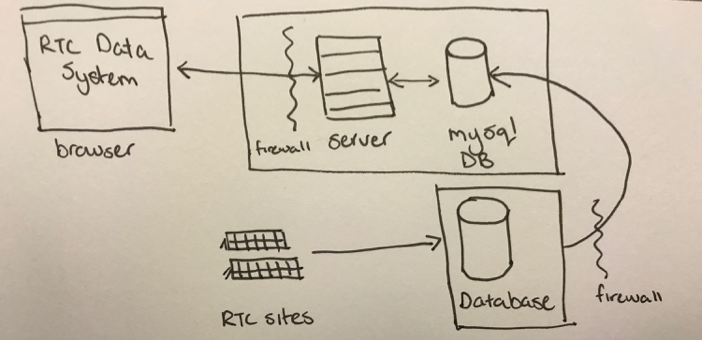 RTC Data
System
browser
firewall
server
mysql
DB
RTC sites
Database
firewall